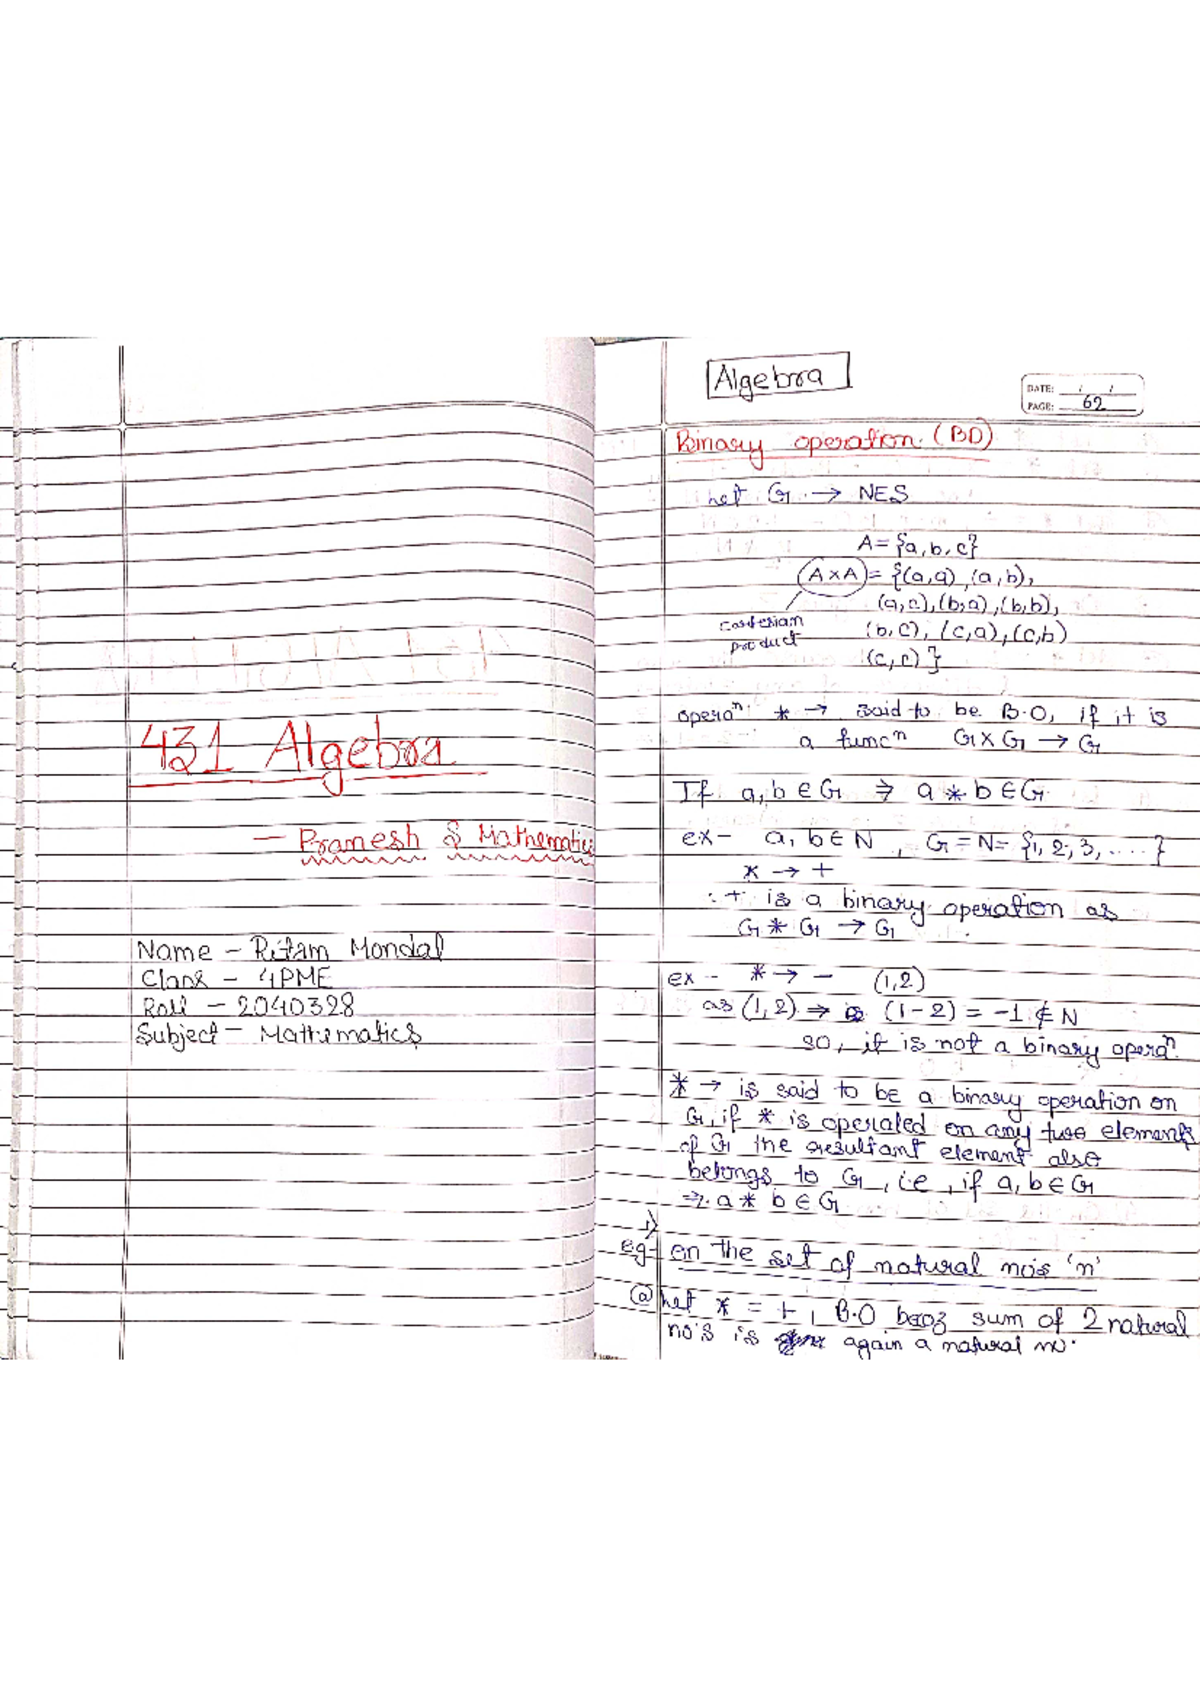 431 Algebra
- Pramesh S Mathematics
Name - Ritam Mondal
Class - 4PME
Roll - 2040328
Subject - Mathematics
Algebra
DATE: / /
PAGE: 62
Binary operation (BO)
Let G → NES
A = {a, b, c}
A×A = {(a,a), (a,b),
(a,c), (b,a), (b,b),
cartesian
product
(b,c), (c,a), (c,b)
(c,c)}
operaⁿ * → said to be B.O, if it is
a funcⁿ G×G → G
If a, b ∈ G ⇒ a * b ∈ G
ex - a, b ∈ N, G = N = {1, 2, 3, ....}
* → +
∴ + is a binary operation as
G * G → G
ex - * → - (1,2)
as (1,2) ⇒ (1-2) = -1 ∉ N
so, it is not a binary operaⁿ.
* → is said to be a binary operation on
G, if * is operated on any two elements
of G the resultant element also
belongs to G, i.e, if a, b ∈ G
⇒ a * b ∈ G
1)
eg - on the set of natural no's 'n'
@ Let * = +, B.O becoz sum of 2 natural
no's is again a natural no.